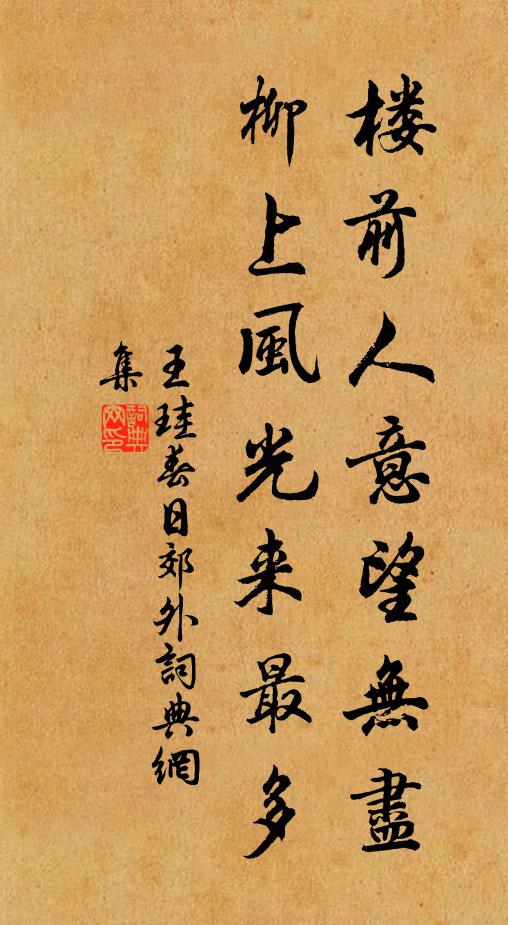 楼前人意望無盡
柳上風光来最多
王珪春日郊外詞典網
集
詞典網印